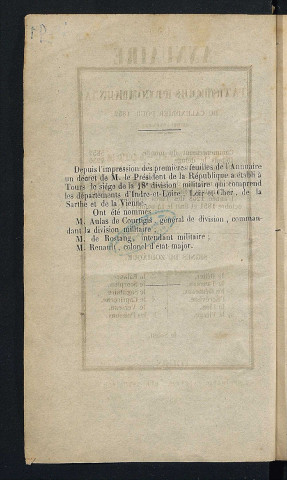 Depuis l'impression des premières feuilles de l'Annuaire
un décret de M. le Président de la République a établi à
Tours le siège de la 18e division militaire qui comprend
les départements d'Indre-et-Loire, Loir-et-Cher, de la
Sarthe et de la Vienne.
Ont été nommés :
M. Aulas de Courtigis, général de division, comman-
dant la division militaire ;
M. de Rostang, intendant militaire ;
M. Renault, colonel d'état-major.